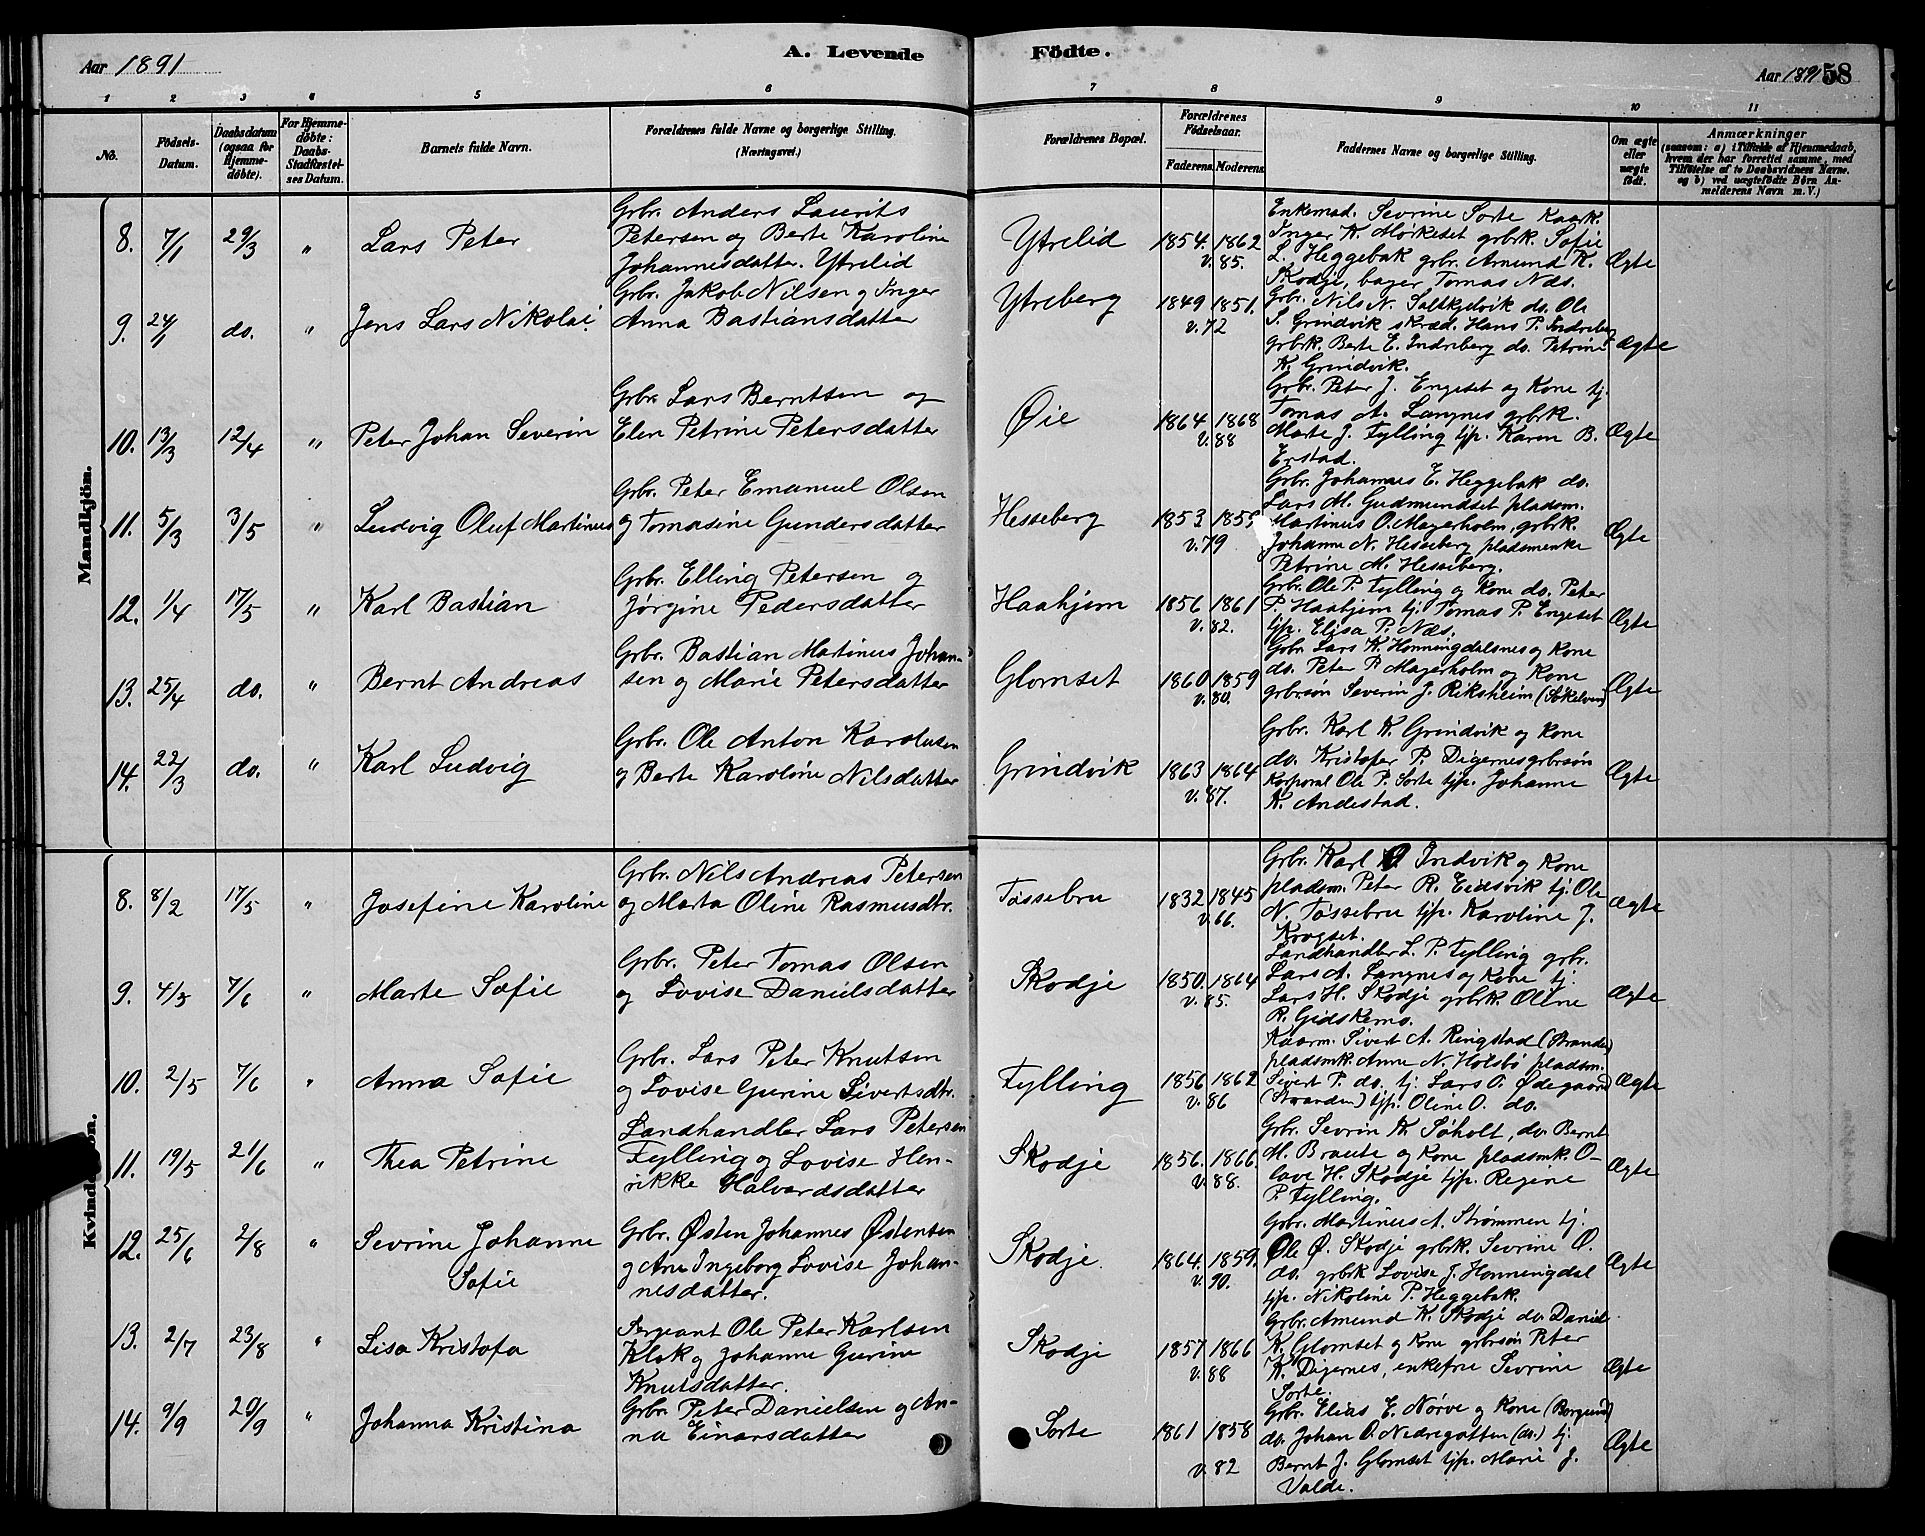 Aar 1891
A. Levende Födte.
Aar 1891 58
1 2 3 4 5 6 7 8 9 10 11
No.
Födsels-Datum.
Daabsdatum (ogsaa for Hjemmedøbte).
For Hjemmedøbte: Daabs-Stadfæstelses Datum.
Barnets fulde Navn.
Forældrenes fulde Navne og borgerlige Stilling.
(Næringsvei.)
Forældrenes Bopæl.
Forældrenes Födselsaar.
Faderens. Moderens.
Faddernes Navne og borgerlige Stilling.
Om ægte eller uægte født.
Anmærkninger
(saasom: a) i Tilfælde af Hjemmedaab,
hvem der har forrettet samme, med
Tilføielse af to Daabsvidners Navne.
og b) ved uægtefødte Börn Anmelderens
Navn m. V.)
Mandkjön.
8. 7/1 29/3 " Lars Peter
Grbr. Anders Laurits
Petersen og Berte Karoline
Johannesdatter. Ytrelid
Ytrelid 1854. 1862
v. 85.
Enkemad. Sevrine Sorte Kaark.
Inger K. Mørkeset grbrk. Sofie
L. Heggebak grbr. Amund K.
Skodje, bager Tomas Næs.
Ægte
9. 24/1 do. " Jens Lars Nikolai
Grbr. Jakob Nilsen og Inger
Anna Bastiansdatter
Ytreberg 1849 1851.
v. 72
Grbr. Nils N. Saltkjelvik do. Ole
S. Grindvik skræd. Hans P. Indreberg
grbrk. Berte E. Indreberg do. Petrine
K. Grindvik.
Ægte
10. 13/3 12/4 " Peter Johan Severin
Grbr. Lars Berntsen og
Elen Petrine Petersdatter
Øie 1864 1868
v. 88
Grbr. Peter J. Engeset og Kone tj.
Tomas A. Langnes grbrk.
Marte J. Fylling tjp. Karen B.
Erstad.
Ægte
11. 5/3 3/5 " Ludvig Oluf Martinus
Grbr. Peter Emanuel Olsen
og Tomasine Gundersdatter
Hesseberg 1853
v. 79
Grbr. Johannes E. Heggebak do.
Lars M. Gudmundset pladsm.
Martinus O. Magerholm, grbrk.
Johanne N. Hesseberg pladsmenke
Petrine M. Hesseberg.
Ægte
12. 1/4 17/5 " Karl Bastian
Grbr. Elling Petersen og
Jørgine Pedersdatter
Haahjem 1856 1861
v. 82.
Grbr. Ole P. Fylling og Kone do. Peter
P. Haahjem tj. Tomas P. Engeset
tjp. Elisa P. Næs.
Ægte
13. 25/4 do. " Bernt Andreas
Grbr. Bastian Martinus Johan-
sen og Marie Petersdatter
Glomset 1860 1859
v. 80.
Grbr. Lars K. Honningdalsnes og Kone
do. Peter P. Magerholm og Kone
grbrsøn Severin J. Riksheim (Søkelven)
Ægte
14. 22/3 do. " Karl Ludvig
Grbr. Ole Anton Karolusen
og Berte Karoline Nilsdatter
Grindvik 1863 1864
v. 87.
Grbr. Karl K. Grindvik og Kone
do. Kristofer P. Digernes grbrsøn
Korporal Ole P. Sorte tjp. Johanne
K. Andestad.
Ægte
Kvindekjön.
8. 8/2 17/5 " Josefine Karoline
Grbr. Nils Andreas Petersen
og Marta Oline Rasmusdtr.
Tøssebru 1832 1845
v. 66.
Grbr. Karl O. Indvik og Kone
pladsm. Peter R. Eidsvik tj. Ole
N. Tøssebru tjp. Karoline J.
Krogset.
Ægte
9. 4/5 7/6 " Marte Sofie
Grbr. Peter Tomas Olsen
og Lovise Danielsdatter
Skodje 1850. 1864
v. 85.
Landhandler L. P. Fylling grbr.
Lars A. Langnes og Kone tj.
Lars H. Skodje grbrk. Oline
R. Gidskemo.
Ægte
10. 2/5 7/6 " Anna Sofie
Grbr. Lars Peter Knutsen
og Lovise Gurine Sivertsdtr.
Fylling 1856 1862
v. 86
Kaarm. Sivert A. Ringstad (Stranden)
pladsmk. Anne N. Holsbø pladsm.
Sivert P. do. tj. Lars O. Ødegaard
(Stranden) tjp. Oline O. do.
Ægte
11. 19/5 21/6 " Thea Petrine
Landhandler Lars Petersen
Fylling og Lovise Hen-
rikke Halvardsdatter
Skodje 1856. 1866.
v. 88.
Grbr. Sevrin K. Søholt, do. Bernt
M. Braute og Kone pladsmk. O-
lave H. Skodje tjp. Regine
P. Fylling.
Ægte
12. 25/6 2/8 " Sevrine Johanne
Sofie
Grbr. Østen Johannes Østensen
og Ane Ingeborg Lovise Johan-
nesdatter.
Skodje. 1864. 1859.
v. 90.
Grbr. Martinus A. Strømmen tj.
Ole Ø. Skodje grbrk. Sevrine O.
do. grbrk Lovise J. Honningdal
tjp. Nikoline P. Heggebak.
Ægte
13. 2/7 23/8 " Lisa Kristofa
Sergeant Ole Peter Karlsen
Klok og Johanne Gurine
Knutsdatter.
Skodje 1857 1866
v. 88
Grbr. Amund K. Skodje do. Daniel
K. Glomset og Kone grbrsøn Peter
K. Digernes, enkefrue Sevrine
Sorte.
Ægte
14. 9/9 20/9 " Johanna Kristina
Grbr. Peter Danielsen og An-
na Einarsdatter
Sorte 1861 1858
v. 82
Grbr. Elias E. Nørve og Kone (Borgund)
do. Johan O. Nedregotten (do.) tj.
Bernt J. Glomset tjp. Marie J.
Valde.
Ægte